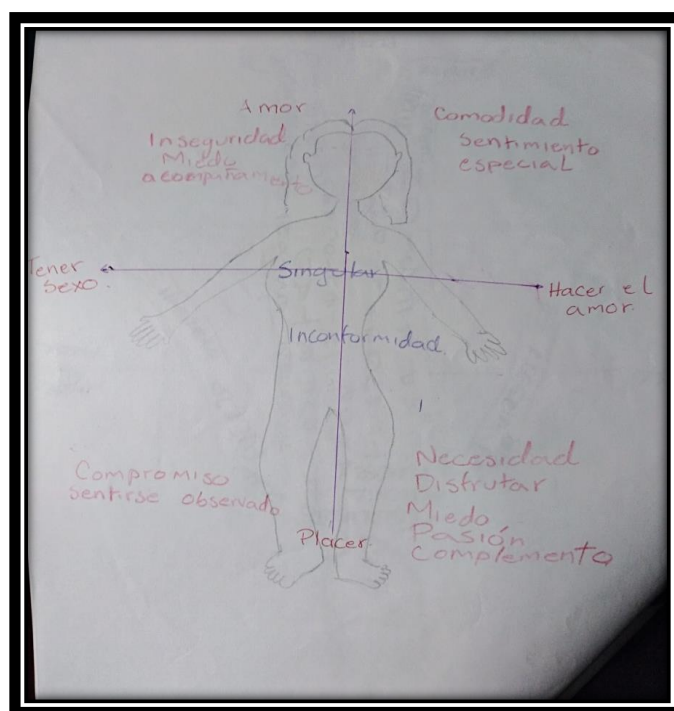 Amor
Inseguridad
Miedo
acompañamento
Comodidad
sentimiento
especial
Tener
sexo.
Singular
Hacer el
amor.
Inconformidad
Compromiso
sentirse observado
Necesidad
Disfrutar
Miedo
Pasión
Complemento
Placer